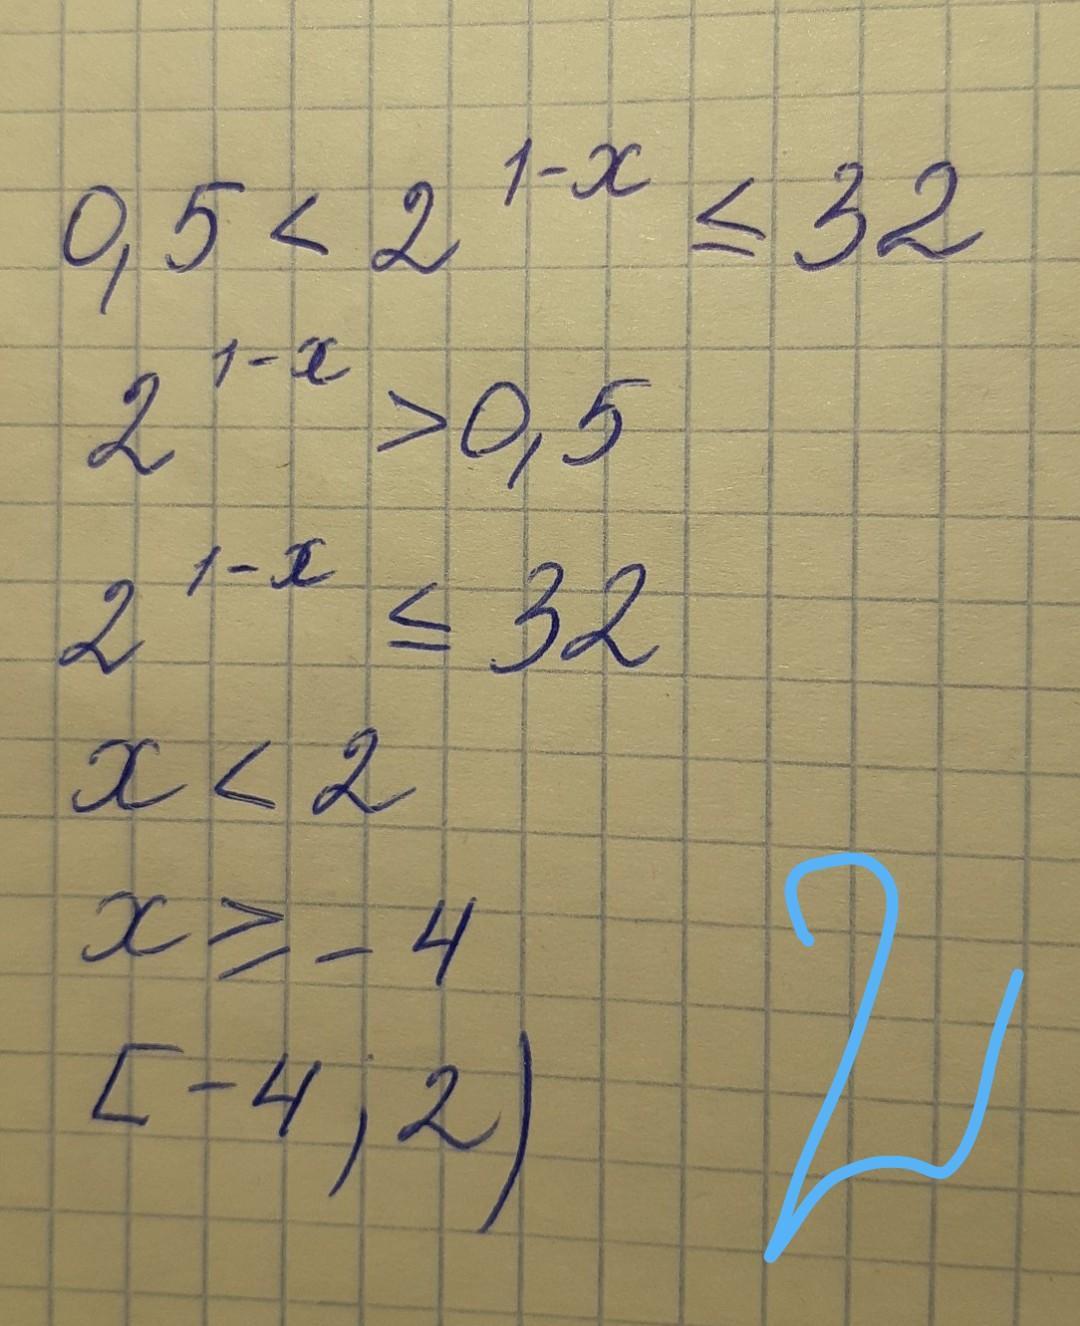 0,5 < 2^{1-x} ≤ 32
2^{1-x} > 0,5
2^{1-x} ≤ 32
x < 2
x ≥ -4
[-4, 2)
2